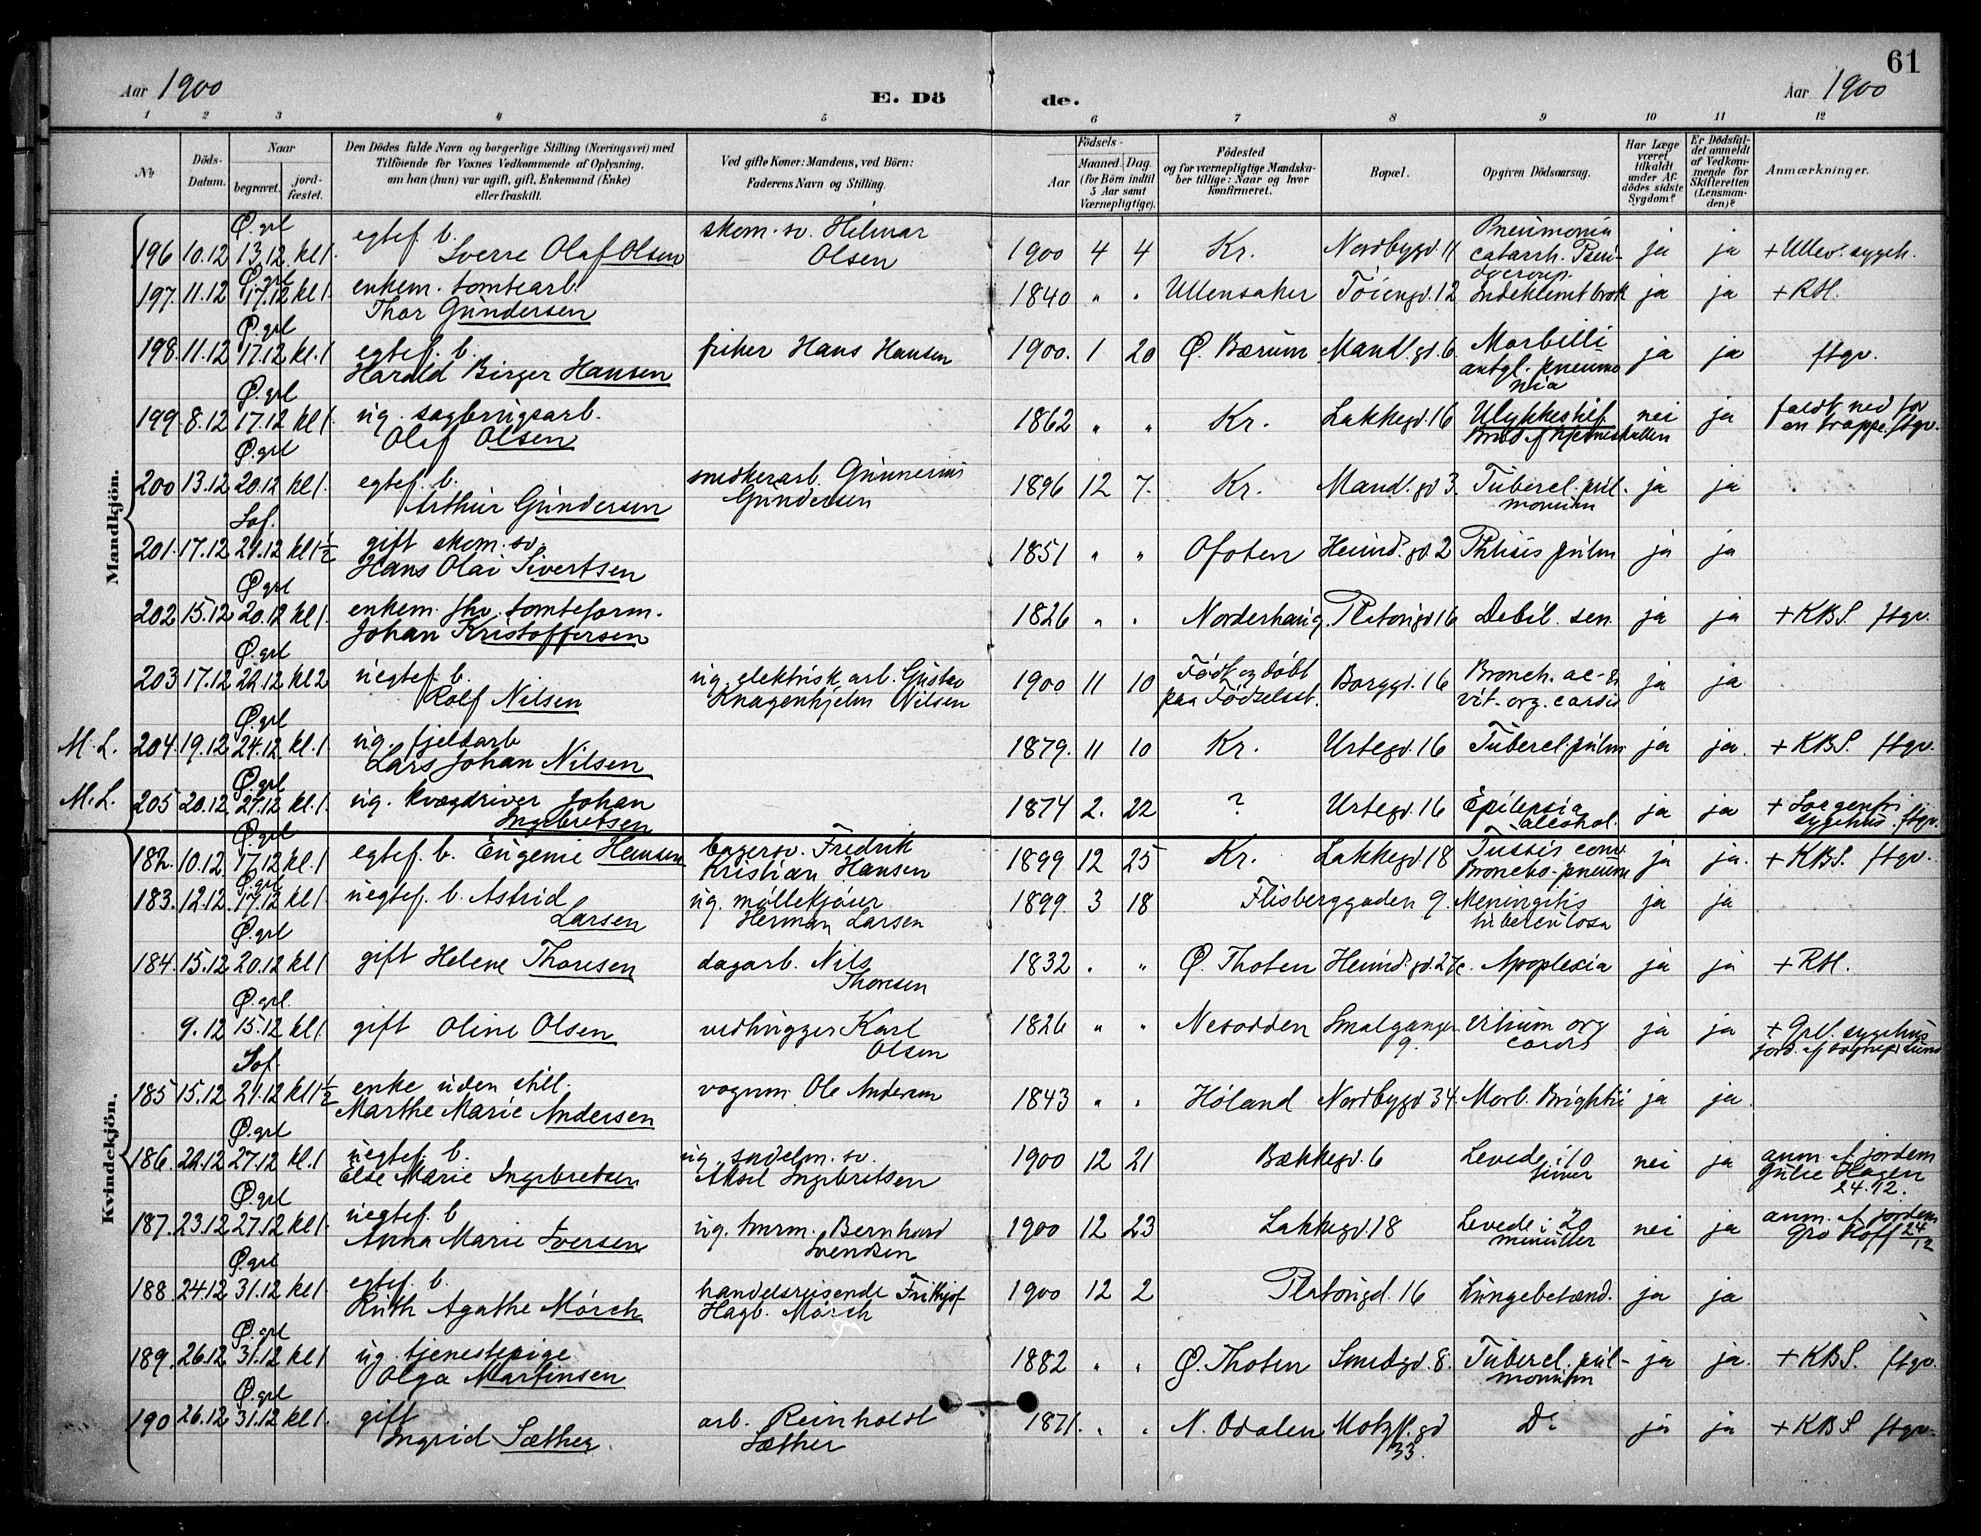 61
Aar 1900
E. Dö
de.
Aar 1900
1 2 3 4 5 6 7 8 9 10 11 12
No
Döds-Datum.
Naar
begravet.
jord-fæstet.
Den Dödes fulde Navn og borgerlige Stilling (Næringsvei) med
Tilföiende for Voxnes Vedkommende af Oplysning,
om han (hun) var ugift, gift, Enkemand (Enke)
eller fraskilt.
Ved gifte Koner: Mandens, ved Börn:
Faderens Navn og Stilling.
Aar
Födsels-
Maaned. Dag.
(for Börn indtil
5 Aar samt
Værnepligtige).
Födested
og for værnepligtige Mandska-
ber tillige: Naar og hvor
Konfirmeret.
Bopæl.
Opgiven Dödsaarsag.
Har Læge
været
tilkaldt
under Af-
dödes sidste
Sygdom?
Er Dödsfal-
det anmeldt
af Vedkom-
mende for
Skifteretten
(Lensman-
den)?
Anmærkninger.
Mandkjön.
Ø. grl
196 10.12 13.12 kl 1. egtef. b. Sverre Olaf Olsen skom. sv. Helmar Olsen 1900 4 4 Kr. Nordbygd. 11 Pneumonia catarrh. Pseudocroup. ja ja + Ullev. sygeh.
Ø. grl
197. 11.12 17.12 kl 1. enkem. tomtearb. Thor Gundersen 1840 " " Ullensaker Töiengd. 12 Indeklemt brok ja ja + RH.
Ø. grl
198. 11.12 17.12 kl. 1 egtef. b. Harald Birger Hansen fisker Hans Hansen 1900. 1 20 Ø. Bærum Mandl. gd. 6 Morbilli antgl. pneumonia ja ja ftgv.
Ø. grl
199. 8.12 17.12 kl 1. ug. sagbrugsarb. Olaf Olsen 1862 " " Kr. Lakkegd. 16 Ulykkestilf. Brud af hjerneskallen nei ja faldt ned for en trappe. ftgv.
Ø. grl
200 13.12 20.12 kl 1. egtef. b. Arthur Gundersen snedkerarb. Gunnerius Gundersen 1896 12 7. Kr. Mandl. gd 3. Tubercl. pulmonum ja ja
Sof.
201. 17.12 21.12 kl 1½ gift skom. sv. Hans Olai Sivertsen 1851 " " Ofoten Heimd. gd 2 Phtisis pulm ja ja
Ø. grl
202 15.12 20.12 kl 1. enkem. fhv. tomteform. Johan Kristoffersen 1826 " " Norderhaug. Platongd 16 Debil. sen. ja ja + KBS. ftgv.
Ø. grl
203 17.12 22.12 kl 2 uegtef. b. Rolf Nilsen ug. elektrisk arb. Gustav Knagenhjelm Nilsen 1900 11 10 Födt og döbt paa Födselsst. Borggd. 16 Bronch. ac. & vit. org. cordis ja ja
Ø. grl
M. L. 204. 19.12 24.12 kl. 1 ug. fjeldarb Lars Johan Nilsen 1879. 11 10 Kr. Urtegd. 16 Tubercl. pulm ja ja. + KBS. ftgv.
Ø. grl
M. L. 205 20.12 27.12 kl. 1. ug. kvægdriver Johan Ingebretsen 1874 2. 22 ? Urtegd. 16 Epilepsia alcohol. ja ja + Sorgenfri sygehus. ftgv.
Kvindekjön.
Ø. grl
182. 10.12 17.12 kl. 1 egtef. b. Eugenie Hansen bagersv. Fredrik Kristian Hansen 1899 12 25 Kr. Lakkegd 18 Tussis conv. Broncho-pneum ja ja. + KBS. ftgv.
Ø. grl
183. 12.12. 17.12 kl 1. uegtef. b. Astrid Larsen ug. møllekjører Herman Larsen 1899. 3 18 Flisberggaden 9. Meningitis tuberculosa ja ja
Ø. grl
184. 15.12 20.12 kl 1 gift Helene Thoresen dagarb. Nils Thoresen 1832 " " Ø. Thoten Heimd. gd. 27c. Apoplexia ja ja + RH.
Ø. grl.
9.12 15.12 kl 1 gift Oline Olsen vedhugger Karl Olsen 1826 " " Nesodden Smalgangen 9. vitium org cordis ja ja + Grl. sygehus jord. af sognepr. Sund
Sof.
185 15.12. 21.12 kl 1½ enke uden still. Marthe Marie Andersen vognm. Ole Andersen 1843 " " Höland Nordbygd 34. Morb. Brightii ja ja.
Ø. grl
186. 22.12 27.12 kl. 1 uegtef. b. Else Marie Ingebretsen ug. sadelm. sv. Aksel Ingebretsen 1900 12 21 Bækkegd. 6 Levede i 10 timer nei ja anm. af jordem Julie Hagen 24.12.
Ø. grl
187. 23.12 27.12 kl 1. uegtef. b Anna Marie Iversen ug. tmrm. Bernhard Svendsen 1900 12 23 Lakkegd. 18 Levede i 20 minutter nei ja anm. af jordem Gro Hoff 24/12
Ø. grl
188 24.12 31.12 kl 1 egtef. b. Ruth Agathe Mörch handelsreisende Frithjof Hagb. Mörch 1900 12 2 Platongd. 16 Lungebetænd. ja ja
Ø. grl
189. 26.12 31.12 kl 1 ug. tjenestepige Olga Martinsen 1882 " " Ø. Thoten Smedgd. 8. Tubercl. pulmonum ja ja. + KBS. ftgv.
Ø. grl
190 26.12 31.12 kl 1. gift Ingrid Sæther. arb. Reinholdt Sæther 1871. " " N. Odalen Motzf. gd 33. Do ja ja + KBS ftgv.